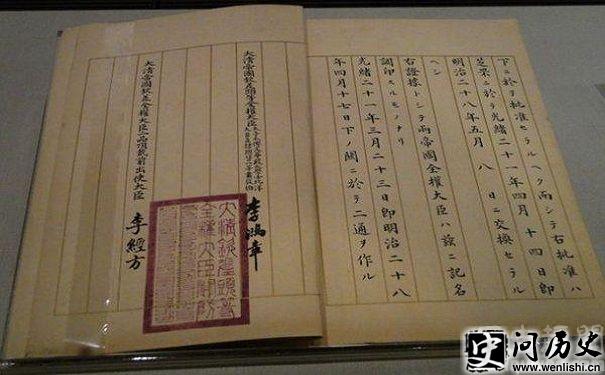 下ニ於テ批准セラルヘク而シテ右批准ハ
芝罘ニ於テ光緒二十一年四月十四日即
明治二十八年五月 八 日ニ交換セラル
ヘシ
右證據トシテ兩帝國全權大臣ハ茲ニ記名
調印スルモノナリ
光緒二十一年三月二十三日即明治二十八
年四月十七日下ノ關ニ於テ二通ヲ作ル
大清帝國欽差頭等全權大臣
李鴻章
大清帝國欽差全權大臣二品頂戴前出使大臣 李經方
大清欽差頭等
全權大臣關防
史
问历史
www.wenlishi.cn